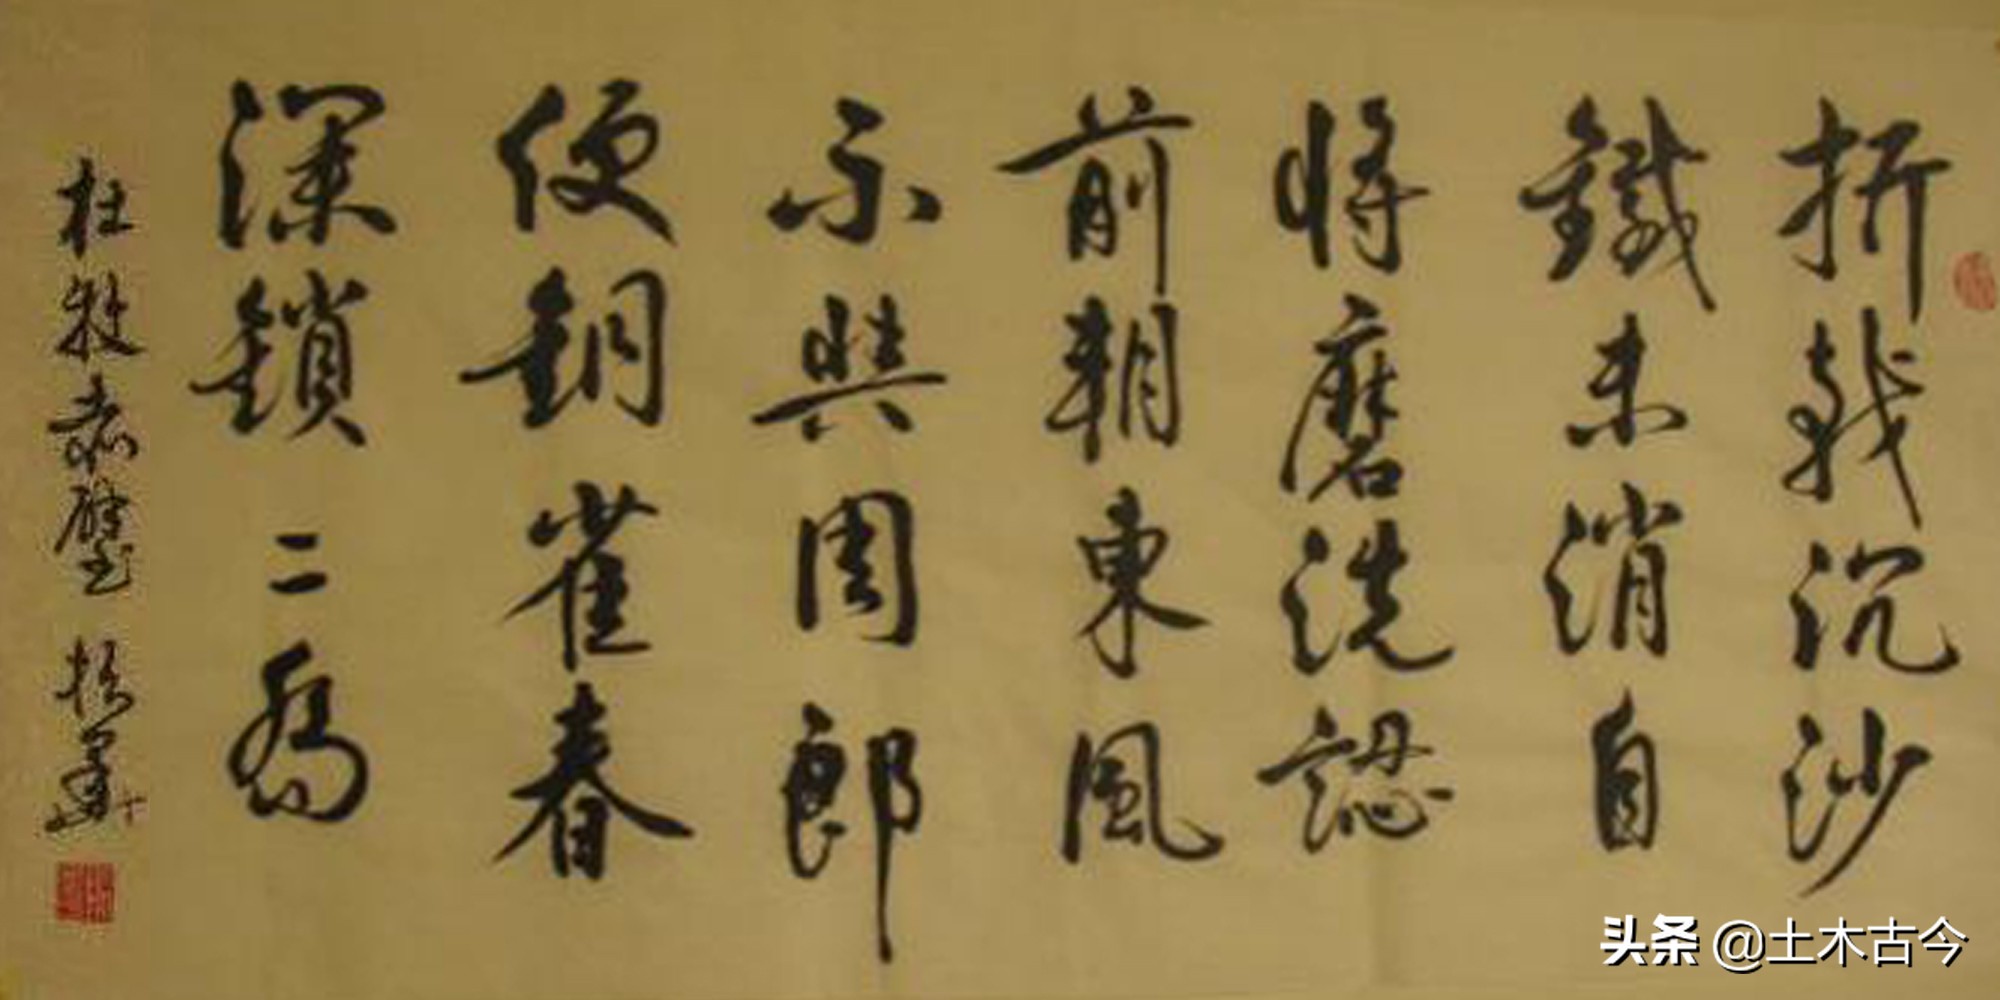 折戟沉沙
鐵未消自
將磨洗認
前朝東風
不與周郎
便銅雀春
深鎖二喬
杜牧赤壁
头条 @土木古今